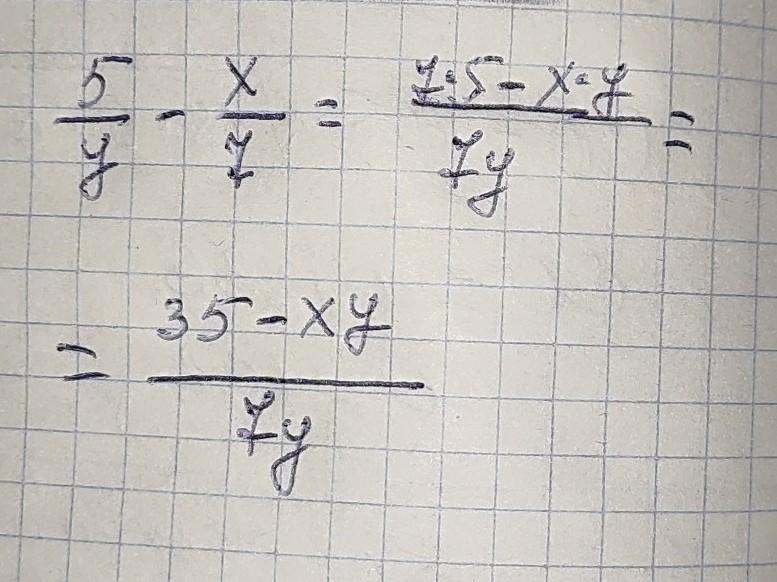 5/y - x/7 = (7·5 - x·y)/7y =
= (35 - xy)/7y